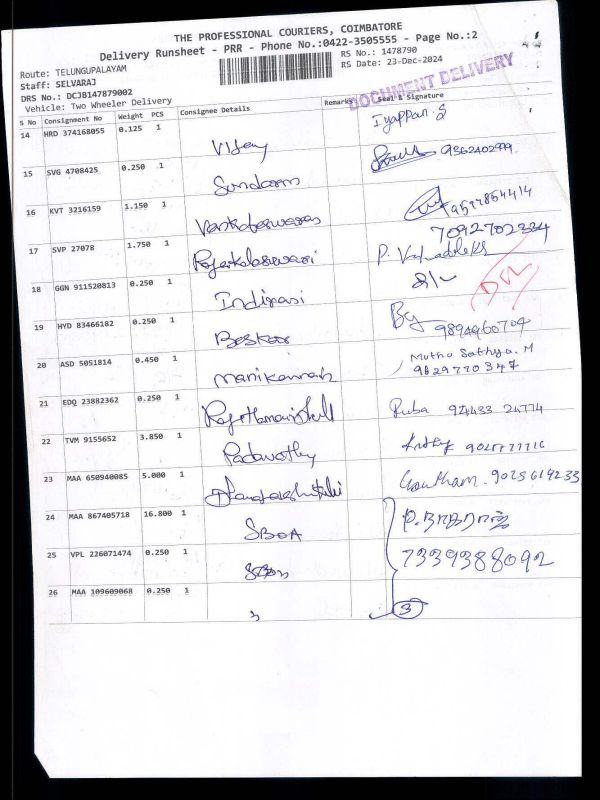 THE PROFESSIONAL COURIERS, COIMBATORE
Delivery Runsheet - PRR - Phone No.:0422-3505555 - Page No.:2
Route: TELUNGUPALAYAM
Staff: SELVARAJ
DRS No.: DCJB147879002
Vehicle: Two Wheeler Delivery
RS No.: 1478790
RS Date: 23-Dec-2024
DOCUMENT DELIVERY
S No Consignment No Weight PCS Consignee Details Remarks Seal & Signature
14 HRD 374168055 0.125 1 Vijay Iyappan.S
15 SVG 4708425 0.250 1 Sundaram 9362402999
16 KVT 3216159 1.150 1 Venkateswaran
7092702334
17 SVP 27078 1.750 1
18 GGN 911520813 0.250 1 Indirani
19 HYD 83466182 0.250 1 Baskar 9894960704
20 ASD 5051814 0.450 1 Manikannan Muthu Sathya.M
9629770347
21 EDQ 23882362 0.250 1 Ruba 94433 24774
22 TVM 9155652 3.850 1
23 MAA 650940085 5.000 1 Gowtham. 9025614233
24 MAA 867405718 16.800 1 SBOA P.நாகராஜ்
25 VPL 226071474 0.250 1 7339388092
26 MAA 109609068 0.250 1 3